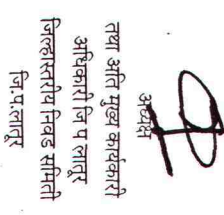 अध्यक्ष
तथा अति मुख्य कार्यकारी
अधिकारी जि प लातूर
जिल्हास्तरीय निवड समिती
जि.प.लातूर